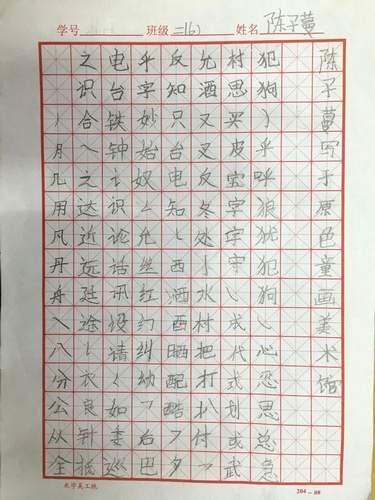 学号 班级 二(6) 姓名 陈子蔓
丿月几用凡丹舟入八分公从全
之识合乀之达近远廷途乀衣良针抵
电台铁钟讠识论话讯设请如委巡
乎字妙始奴𡿨允丝红幻纠幼乛后巴
反知只台电知西洒酉晒配酷夕
允酒又叉反冬处亅水村把打扒付
村思买皮宝字牢宇成代式划或武
犯狗乎呼狼犹犯狗心恋思总急
陈子蔓写于原色童画美术馆
204-08